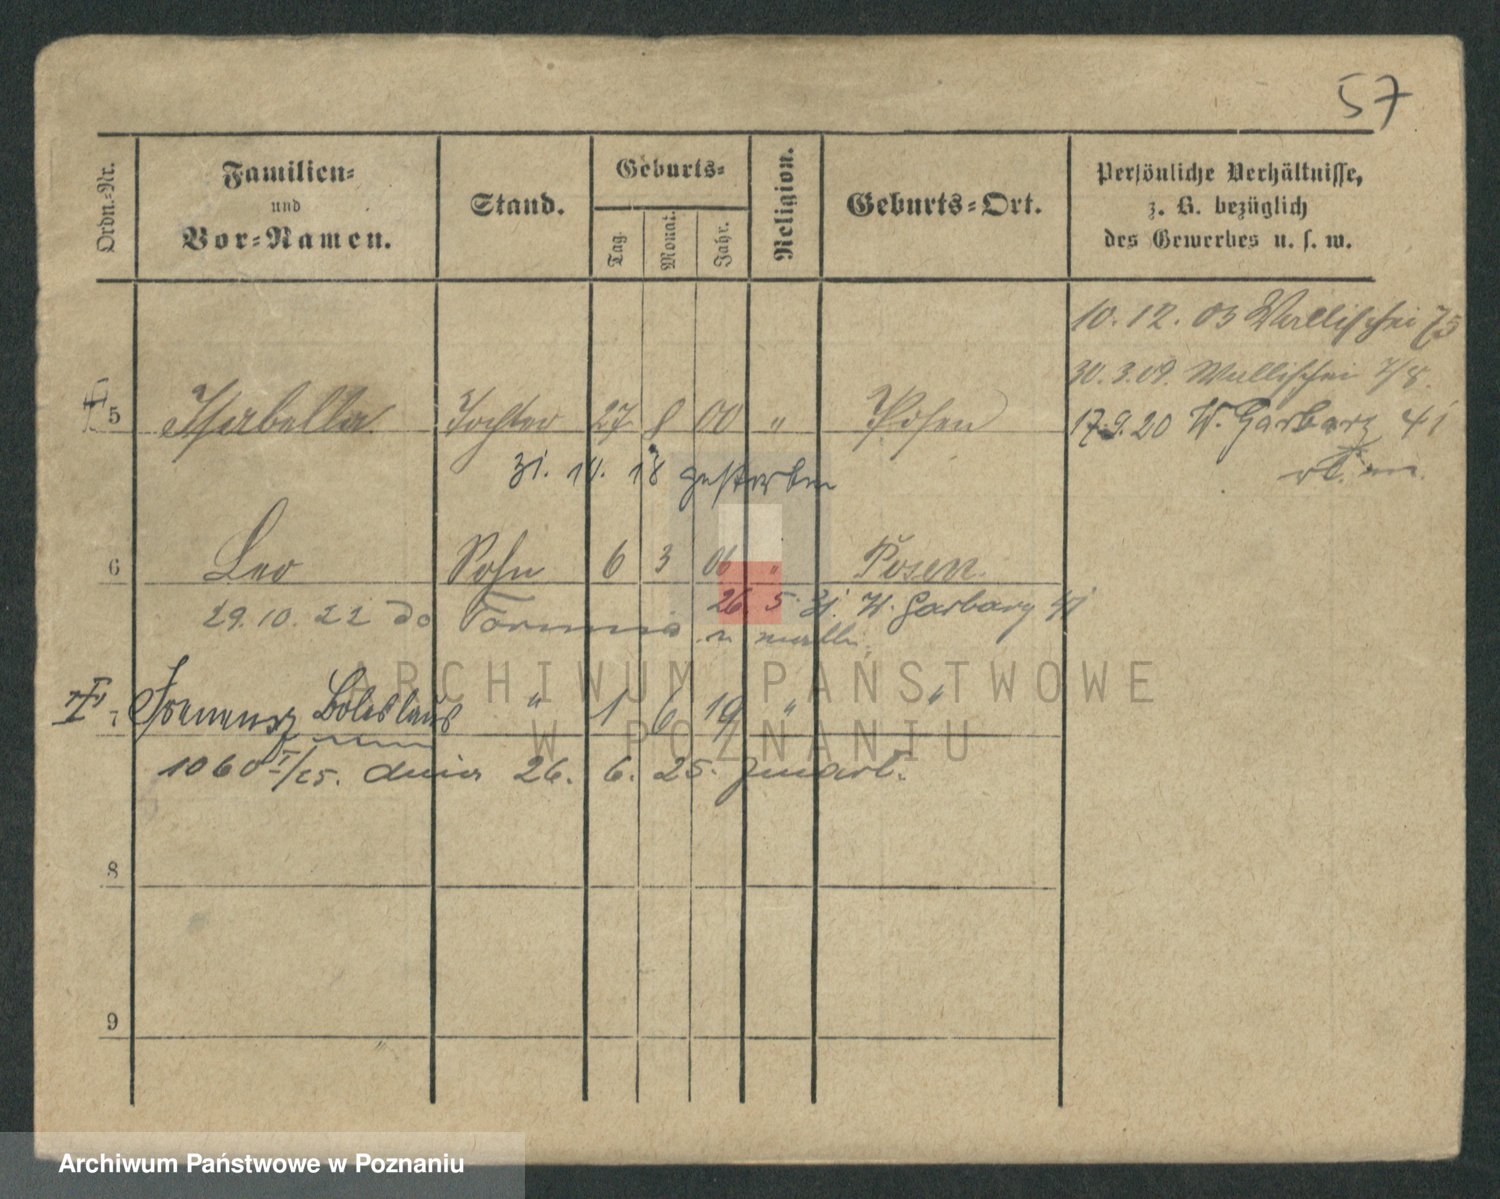 57
Ordn.-Nr.
Familien-
und
Vor-Namen.
Stand.
Geburts-
Tag.
Monat.
Jahr.
Religion.
Geburts-Ort.
Persönliche Verhältnisse,
z. B. bezüglich
des Gewerbes u. s. w.
10. 12. 03 Wallischei 75
30. 3. 09. Wallischei 7/8.
5 Isabella Tochter 27 8 00 " Posen
17.9.20 W. Garbary 41
31. 10. 18 gestorben
6 Leo Sohn 6 3 06 " Posen
29.10.22 do 26. 5. 31. W. Garbary 41
7 Boleslaus " 1 6 19 " "
dnia 26. 6. 25. zmarł.
8
9
ARCHIWUM PAŃSTWOWE
W POZNANIU
Archiwum Państwowe w Poznaniu